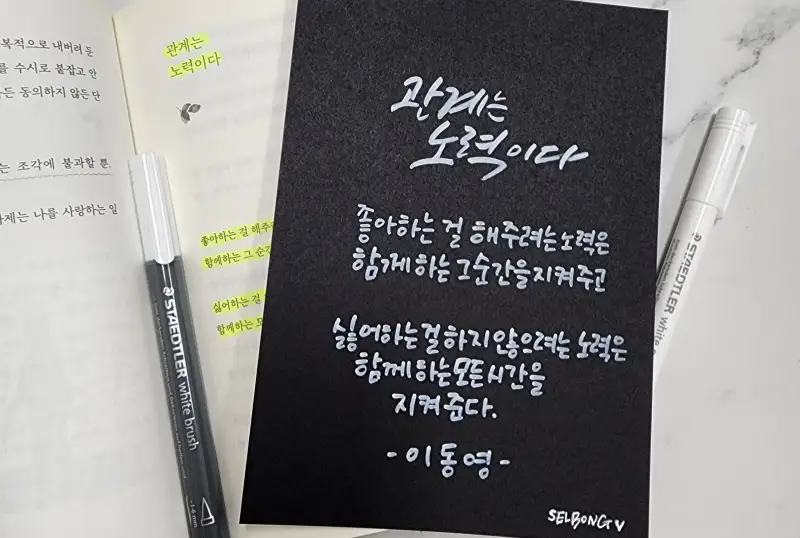 복적으로 내버려 둔
를 수시로 붙잡고 안
든 동의하지 않든 단
는 조각에 불과할 뿐.
나를 사랑하는 일
관계는
노력이다
좋아하는 걸 해주
함께하는 그 순간
싫어하는 걸
함께하는 모
관계는
노력이다
좋아하는 걸 해주려는 노력은
함께하는 그 순간을 지켜주고
싫어하는 걸 하지 않으려는 노력은
함께하는 모든 시간을
지켜준다.
- 이동영 -
SELBONG
STAEDTLER white brush
1-6 mm
STAEDTLER white